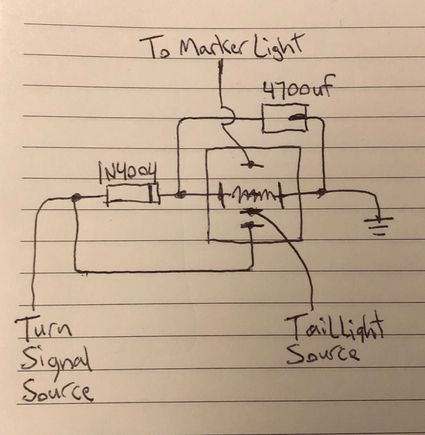 To Marker Light
4700uf
1N4004
Turn
Signal
Source
TailLight
Source